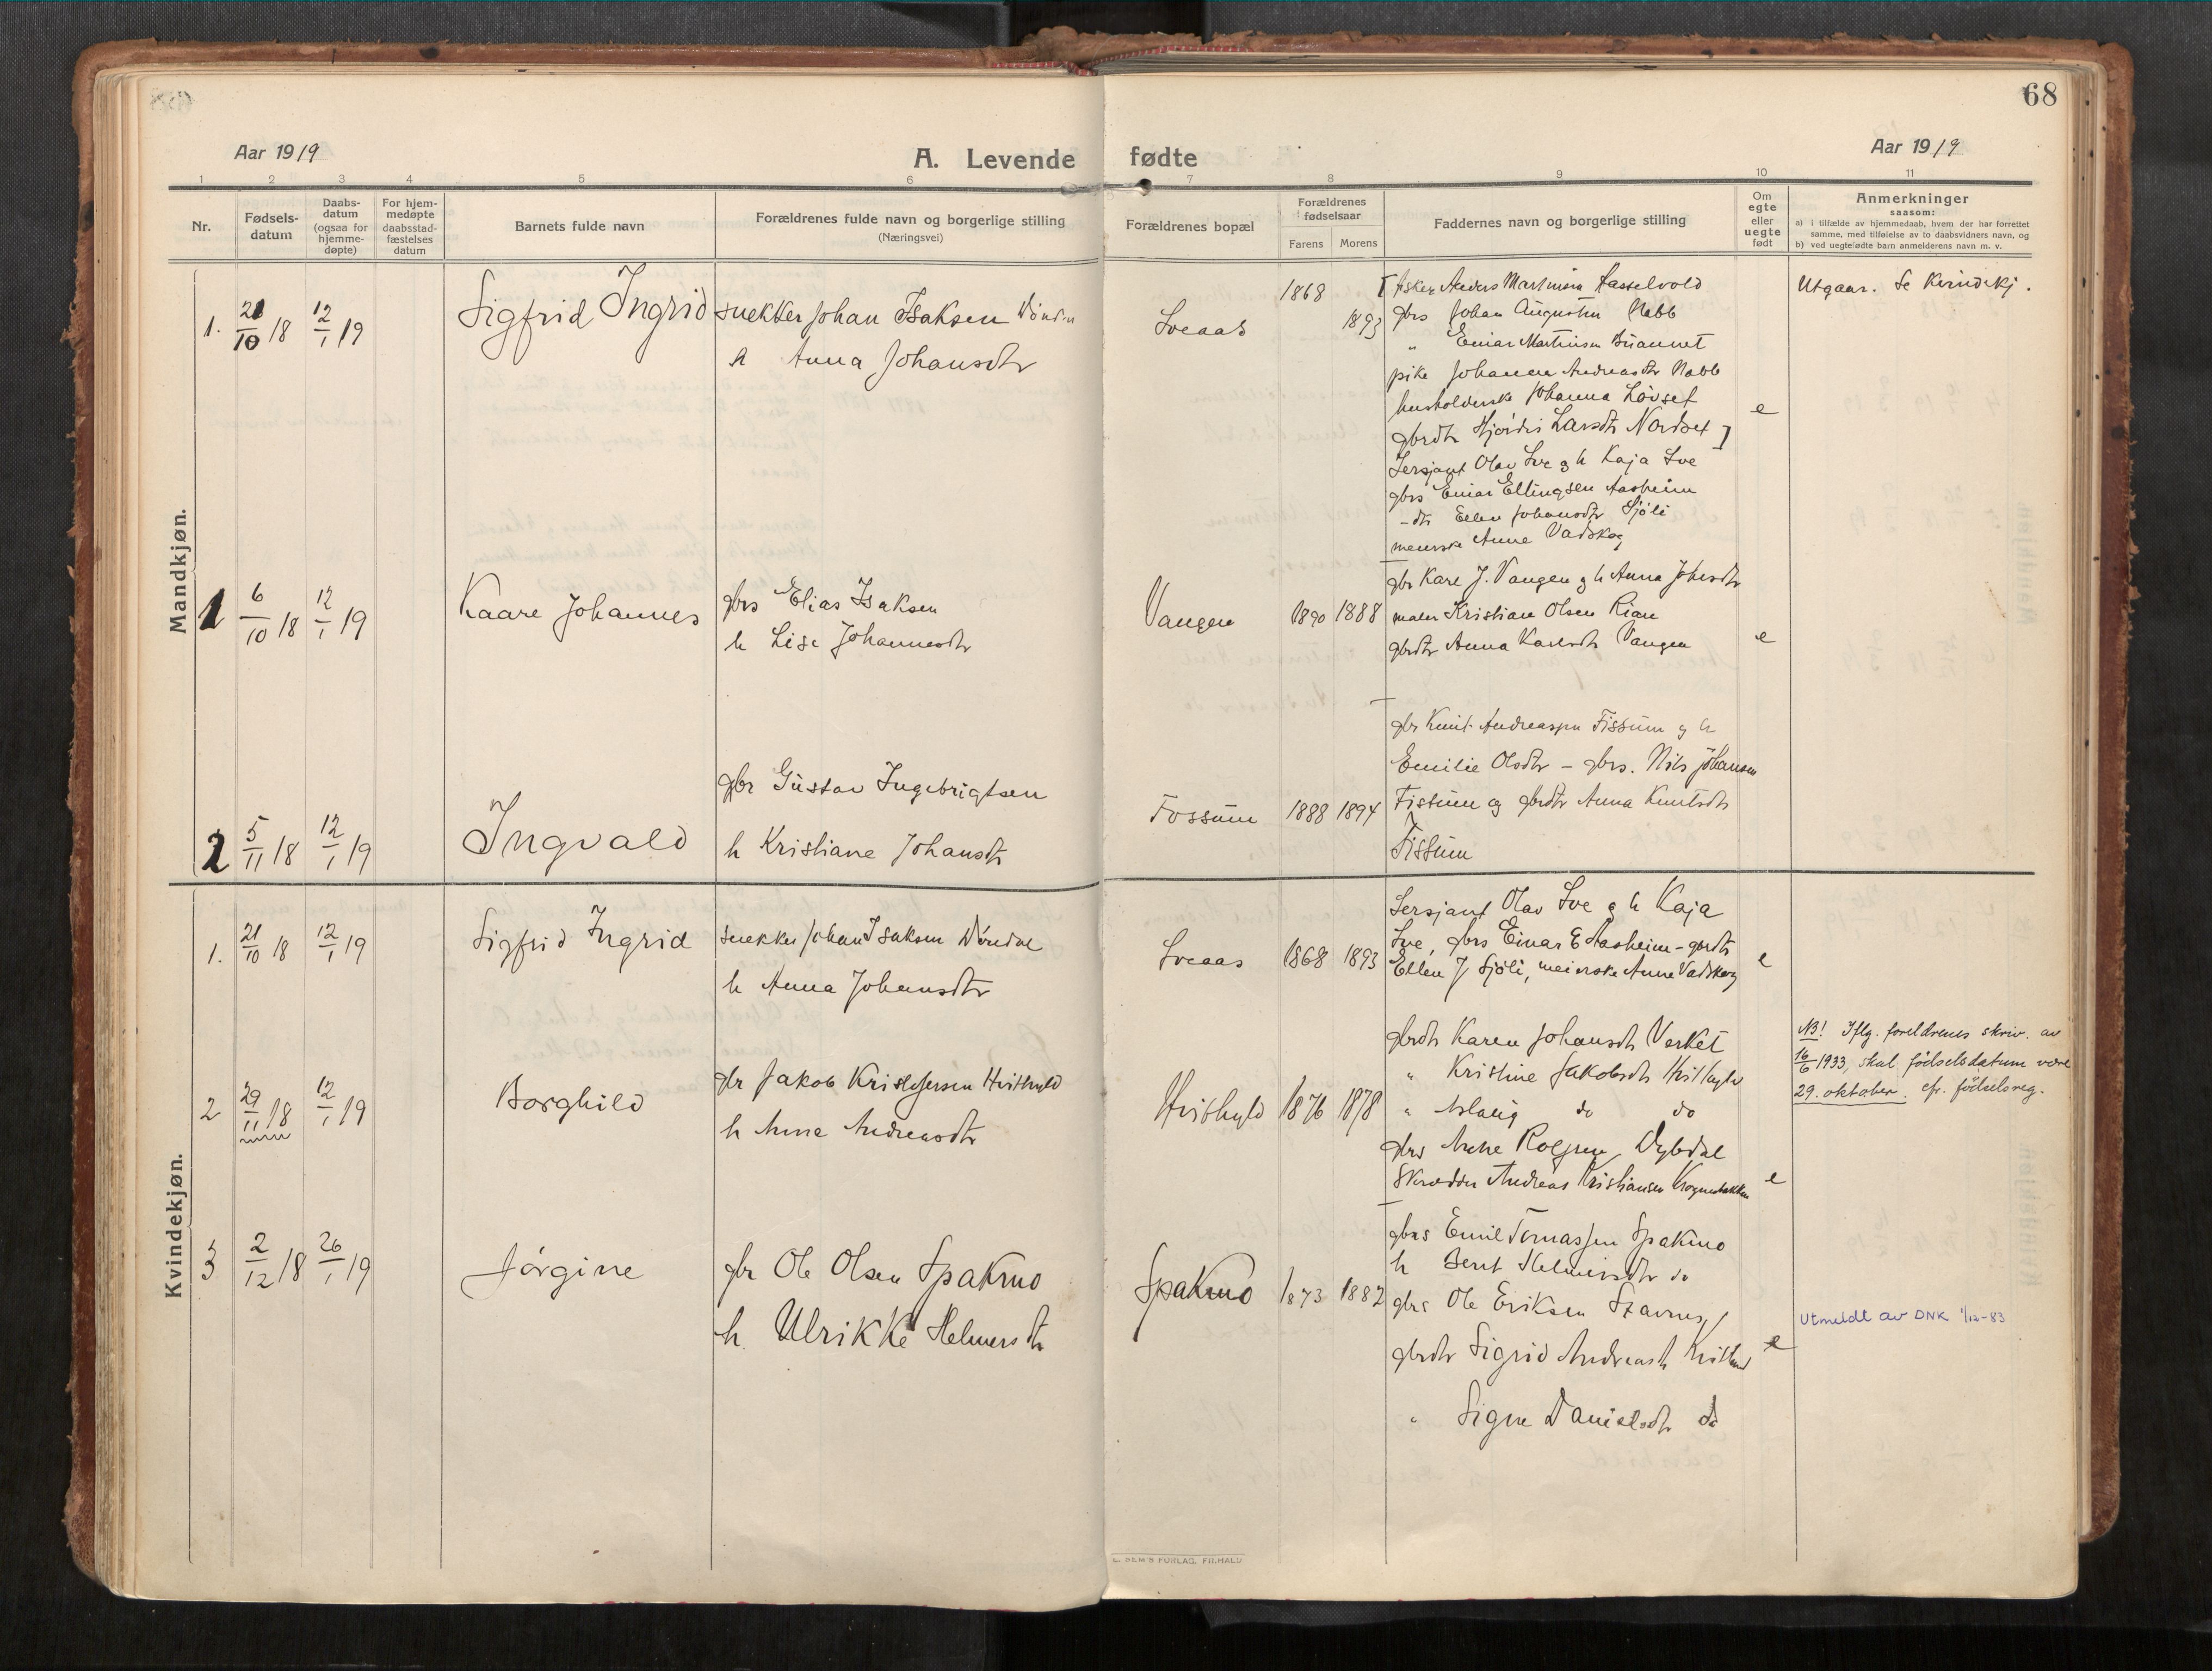 68
Aar 1919
A. Levende fødte
Aar 1919
1 2 3 4 5 6 7 8 9 10 11
Nr.
Fødsels-
datum
Daabs-
datum
(ogsaa for
hjemme-
døpte)
For hjem-
medøpte
daabsstad-
fæstelses
datum
Barnets fulde navn
Forældrenes fulde navn og borgerlige stilling
(Næringsvei)
Forældrenes bopæl
Forældrenes
fødselsaar
Farens Morens
Faddernes navn og borgerlige stilling
Om
egte
eller
uegte
født
Anmerkninger
saasom:
a) i tilfælde av hjemmedaab, hvem der har forrettet
samme, med tilføielse av to daabsvidners navn, og
b) ved uegtefødte barn anmelderens navn m. v.
Mandkjøn.
1. 21/10 18 12/1 19
Sigfrid Ingrid
snekker Johan Isaksen
h Anna Johansdtr
Sveaas
1868 1893
[fisker Anders Martinsen Hasselvold
gbrs Johan Augustin Nabb
" Einar Martinsen
pike Johanna Andreasdtr Nabb
husholderske Johanna Lövset
gbrdtr Hjördis Larsdtr Nordset ]
Sersjant Olav Sve og h Kaja Sve
gbrs Einar Ellingsen Aasheim
- dtr Ellen Johansdtr Sjöli
meierske Anne Vadskog
e
Utgaar. Se Kvindekj.
1 6/10 18 12/1 19
Kaare Johannes
gbrs Elias Isaksen
h Lise Johannesdtr
Vangen
1890 1888
gbr Kare J. Vangen og h Anna Johsdtr
maler Kristian Olsen Rian
gbrdtr Anna Karlsdtr Vangen
e
2 5/11 18 12/1 19
Ingvald
gbr Gustav Ingebrigtsen
h Kristiane Johansdtr
Fossum
1888 1894
gbr Knut Andreassen Fissum og h
Emilie Olsdtr - gbrs. Nils Johansen
Fissum og gbrdtr Anna Knutsdtr
Fissum
Kvindekjøn.
1. 21/10 18 12/1 19
Sigfrid Ingrid
snekker Johan Isaksen Döndal
h Anna Johansdtr
Sveaas
1868 1893
Sersjant Olav Sve og h Kaja
Sve, gbrs Einar E Aasheim - gbrdtr
Ellen J Sjöli, meierske Anne Vadskog
e
2 29/11 18 12/1 19
Borghild
gbr Jakob Kristofersen Hvithyld
h Anne Andreasdtr
Hvithyld
1876 1878
gbrdtr Karen Johansdtr Verket
" Kristine Jakobsdtr Hvithyld
" Aslaug do do
gbrs Arne Rolfsen Dybdal
Skrædder Andreas Kristiansen
e
NB! Iflg. foreldrenes skriv. av
16/6 1933, skal födselsdatum være
29. oktober. cfr. födselsreg.
3 2/12 18 26/1 19
Jörgine
gbr Ole Olsen Spakmo
h. Ulrikke Helmersdtr
Spakmo
1873 1882
gbrs Emil Tomassen Spakmo
h Berit Helmersdtr do
gbrs Ole Eriksen
gbrdtr Sigrid Andreasdtr
" Signe Danielsdtr do
e
Utmeldt av DNK 1/12-83
E. SEM'S FORLAG, FR.HALD